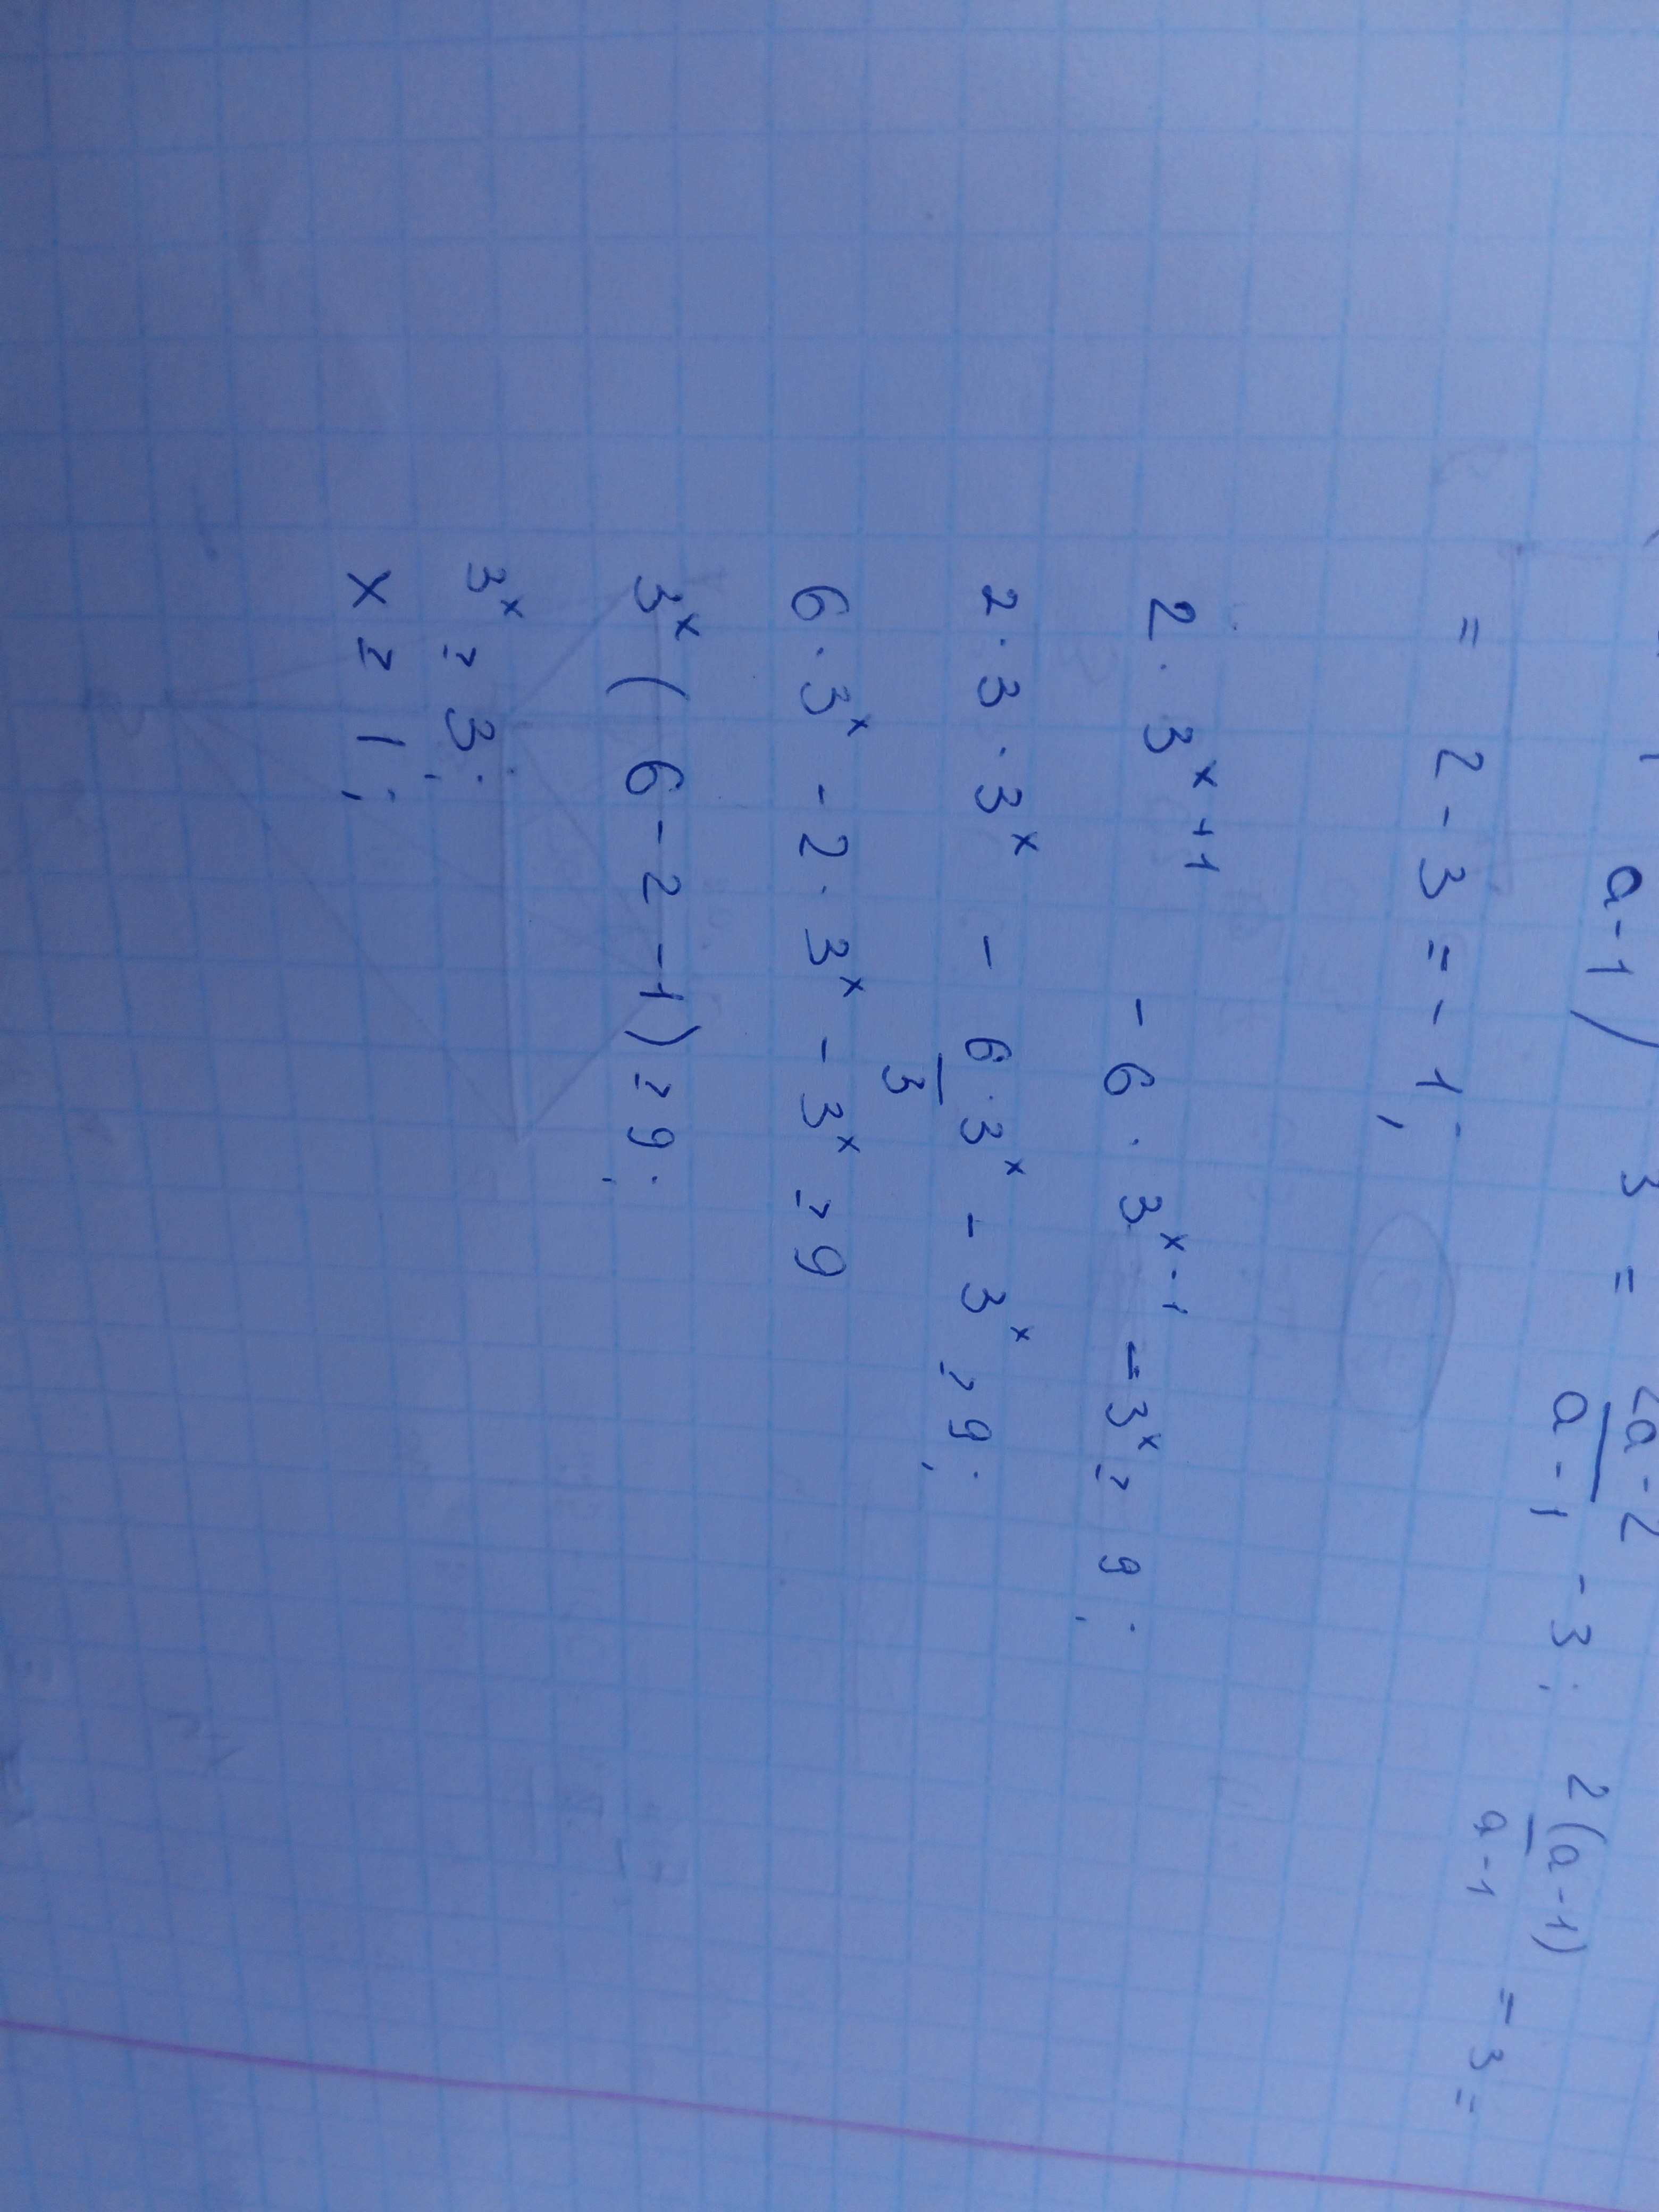 a-1) 3 = 2a-2/a-1 - 3; 2(a-1)/a-1 - 3 =
= 2-3 = -1;
2·3^(x+1) - 6·3^(x-1) - 3^x ≥ 9;
2·3·3^x - 6/3·3^x - 3^x ≥ 9;
6·3^x - 2·3^x - 3^x ≥ 9
3^x (6-2-1) ≥ 9;
3^x ≥ 3;
x ≥ 1;